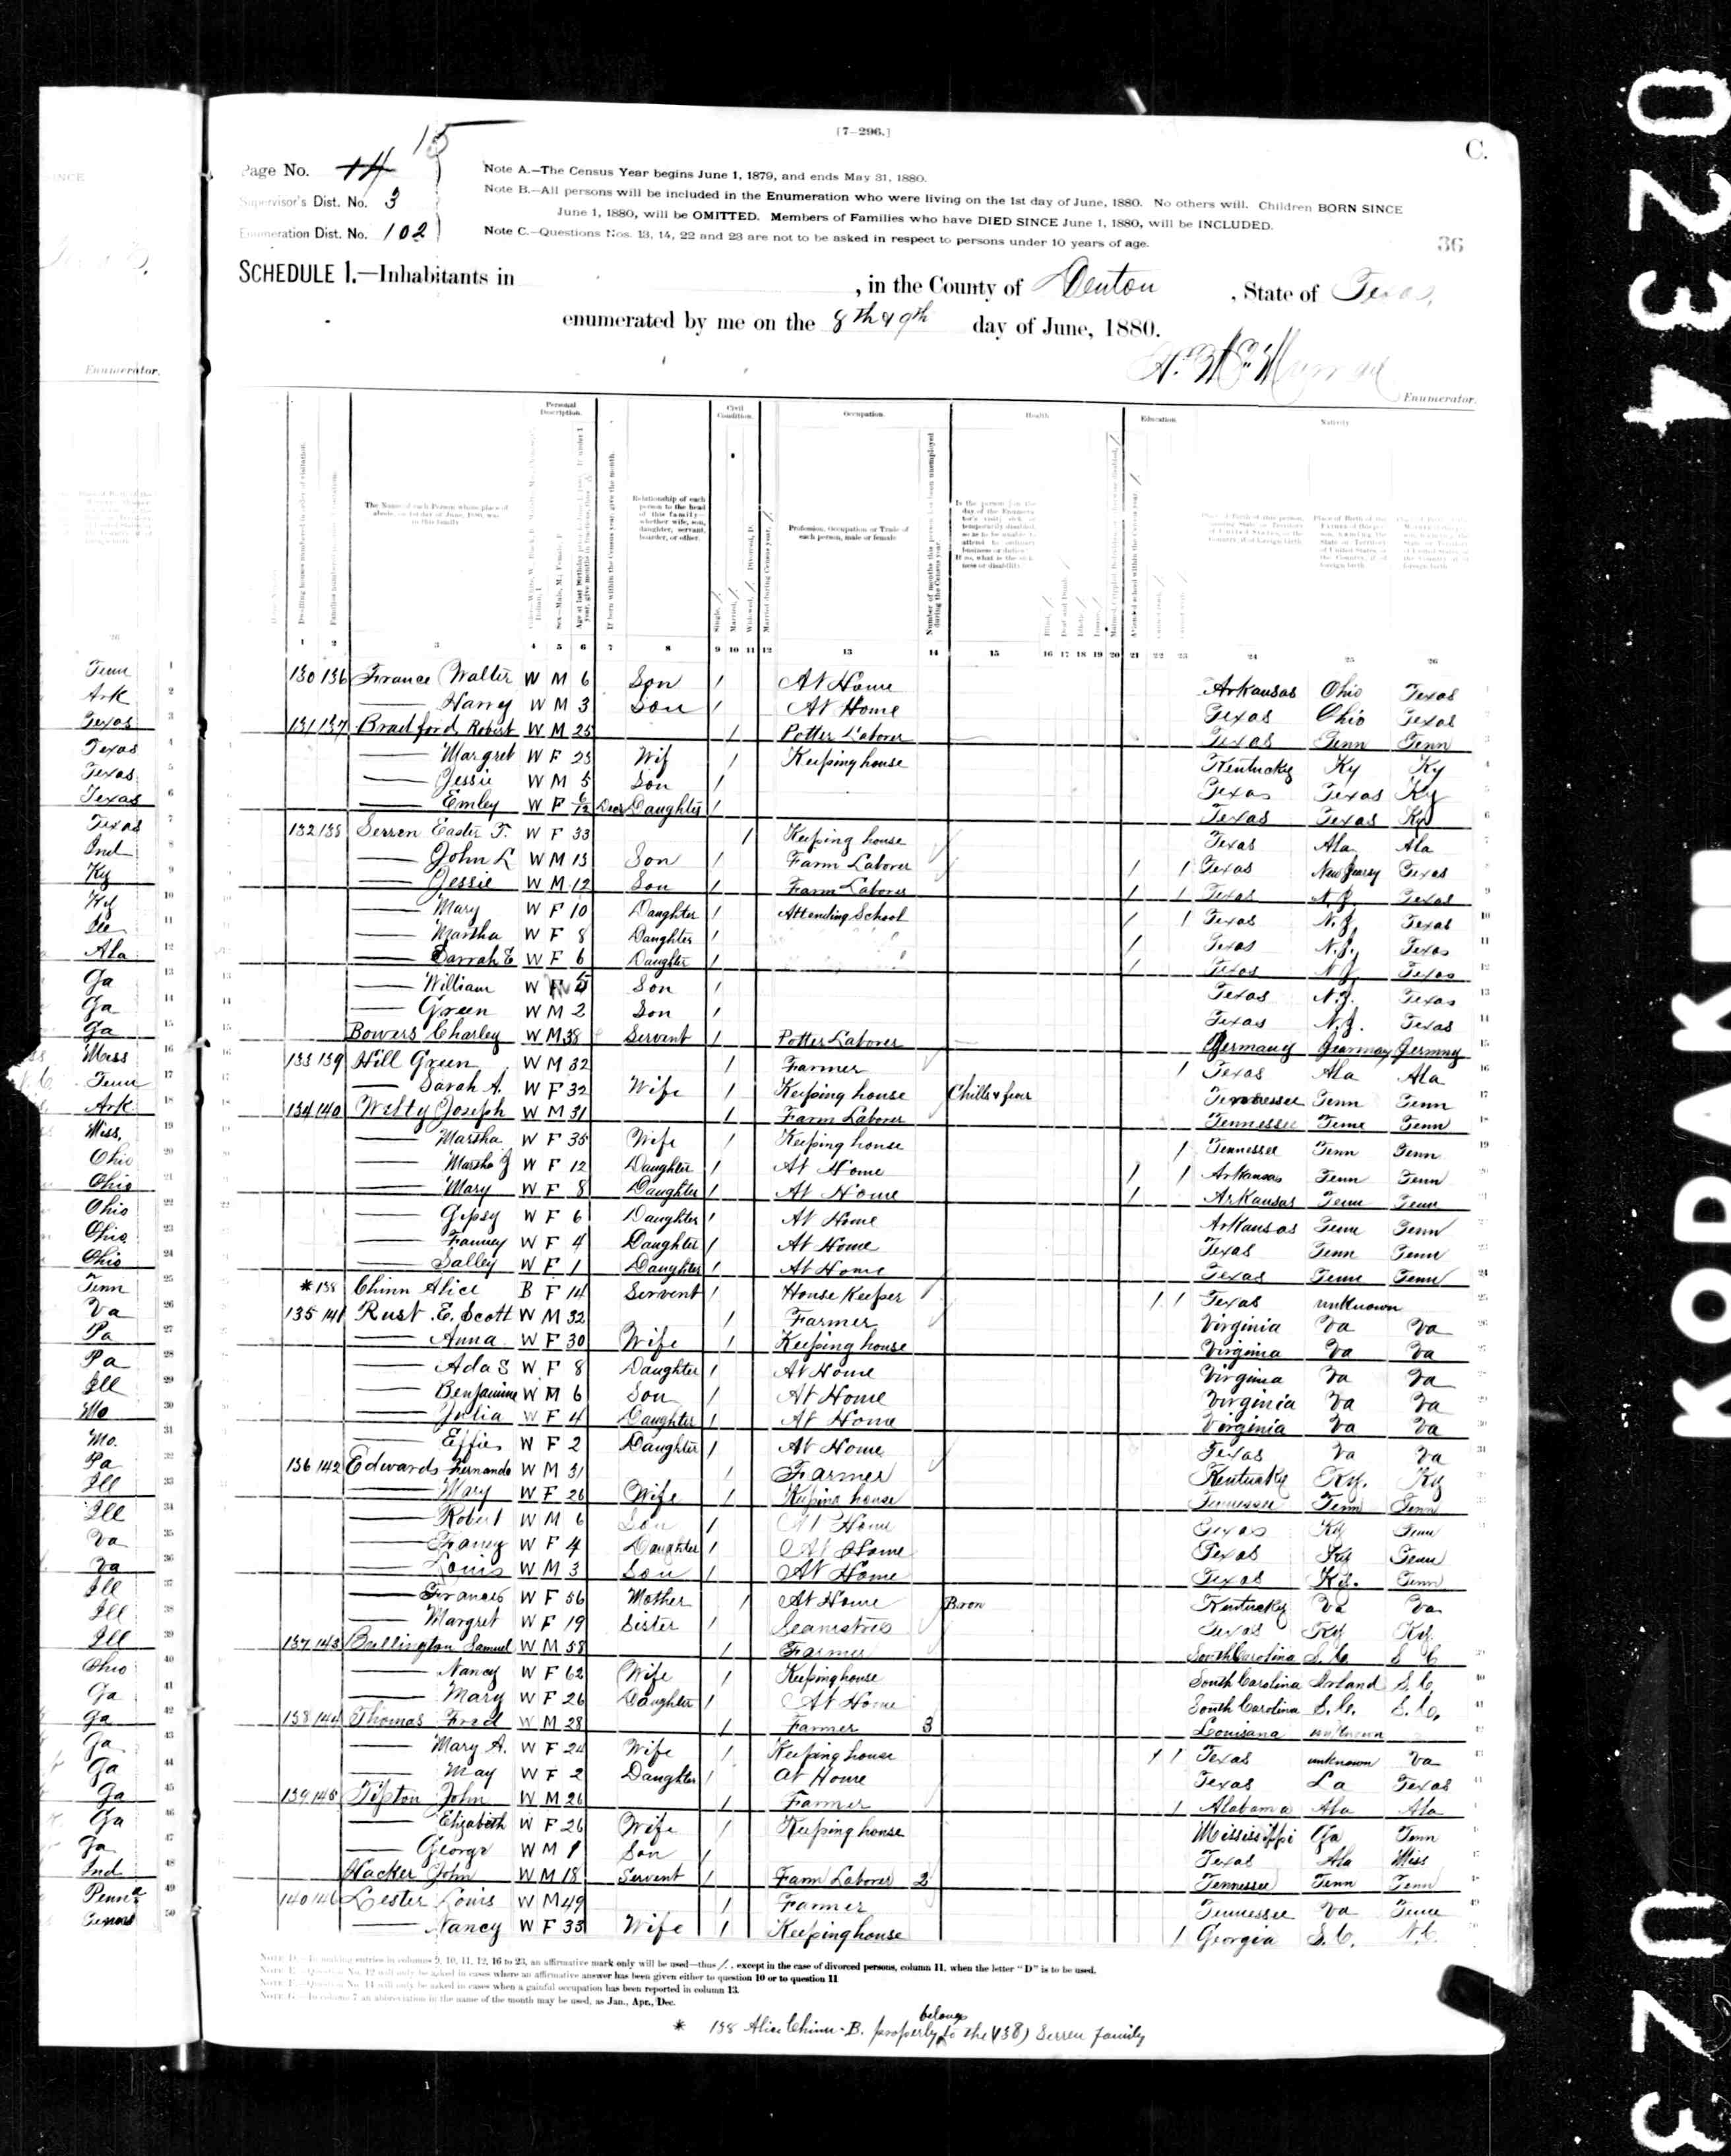 [7-296.]
C.
Page No. 14 15
Supervisor's Dist. No. 3
Enumeration Dist. No. 102
Note A.—The Census Year begins June 1, 1879, and ends May 31, 1880.
Note B.—All persons will be included in the Enumeration who were living on the 1st day of June, 1880. No others will. Children BORN SINCE
June 1, 1880, will be OMITTED. Members of Families who have DIED SINCE June 1, 1880, will be INCLUDED.
Note C.—Questions Nos. 13, 14, 22 and 23 are not to be asked in respect to persons under 10 years of age.
36
SCHEDULE 1.—Inhabitants in , in the County of Denton , State of Texas,
enumerated by me on the 8th & 9th day of June, 1880.
Enumerator.
Personal Description. Civil Condition. Occupation. Health Education. Nativity
The Name of each Person whose place of abode, on 1st day of June, 1880, was in this family
Relationship of each person to the head of this family—whether wife, son, daughter, servant, boarder, or other.
Profession, Occupation or Trade of each person, male or female
1 2 3 4 5 6 7 8 9 10 11 12 13 14 15 16 17 18 19 20 21 22 23 24 25 26
130 136 France Walter W M 6 Son / At Home Arkansas Ohio Texas
— Harry W M 3 Son / At Home Texas Ohio Texas
131 137 Bradford Robert W M 25 / Potter Laborer Texas Tenn Tenn
— Margret W F 23 Wif / Keeping house Kentucky Ky Ky
— Jessie W M 5 Son / Texas Texas Ky
— Emley W F 6/12 Dec Daughter / Texas Texas Ky
132 138 Serren Easter F. W F 33 / Keeping house Texas Ala Ala
— John L W M 13 Son / Farm Laborer / / Texas New Jearsy Texas
— Jessie W M 12 Son / Farm Laborer / / Texas N.J. Texas
— Mary W F 10 Daughter / Attending School / / Texas N.J. Texas
— Martha W F 8 Daughter / / Texas N.J. Texas
— Sarrah E W F 6 Daughter / / Texas N.J. Texas
— William W M Son / Texas N.J. Texas
— Green W M 2 Son / Texas N.J. Texas
Bowers Charley W M 38 Servent / Potter Laborer Germany Gearmay Jermny
133 139 Hill Green W M 32 / Farmer / Texas Ala Ala
— Sarah A. W F 32 Wife / Keeping house Chills & fever Tennessee Tenn Tenn
134 140 Welty Joseph W M 31 / Farm Laborer Tennessee Tenn Tenn
— Martha W F 35 Wife / Keeping house / Tennessee Tenn Tenn
— Martha J W F 12 Daughter / At Home / / Arkansas Tenn Tenn
— Mary W F 8 Daughter / At Home / Arkansas Tenn Tenn
— Gipsy W F 6 Daughter / At Home Arkansas Tenn Tenn
— Fanney W F 4 Daughter / At Home Texas Tenn Tenn
— Salley W F 1 Daughter / At Home Texas Tenn Tenn
* 138 Chinn Alice B F 14 Servent / House Keeper / / Texas unknown
135 141 Rust E. Scott W M 32 / Farmer Virginia Va Va
— Anna W F 30 Wife / Keeping house Virginia Va Va
— Ada S W F 8 Daughter / At Home Virginia Va Va
— Benjamine W M 6 Son / At Home Virginia Va Va
— Julia W F 4 Daughter / At Home Virginia Va Va
— Effie W F 2 Daughter / At Home Texas Va Va
136 142 Edwards Fernando W M 31 / Farmer Kentucky Ky. Ky
— Mary W F 26 Wife / Keeping house Tennessee Tenn Tenn
— Robert W M 6 Son / At Home Texas Ky Tenn
— Faney W F 4 Daughter / At Home Texas Ky Tenn
— Louis W M 3 Son / At Home Texas Ky. Tenn
— Frances W F 56 Mother / At Home Kentucky Va Va
— Margret W F 19 Sister / Seamstres Texas Ky Ky.
137 143 Bullington Samuel W M 58 / Farmer South Carolina S. C S C
— Nancy W F 62 Wife / Keeping house South Carolina Irland S. C.
— Mary W F 26 Daughter / At Home South Carolina S. C. S. C.
138 144 Thomas Fred W M 28 / Farmer 3 Louisana unknown
— Mary A. W F 24 Wife / Keeping house / / Texas unknown Va
— May W F 2 Daughter / at Home Texas La Texas
139 145 Tipton John W M 26 / Farmer / Alabama Ala Ala
— Elizabeth W F 26 Wife / Keeping house Mississippi Ga Tenn
— George W M 1 Son / Texas Ala Miss
Hacker John W M 18 Servent / Farm Laborer 2 Tennessee Tenn Tenn
140 146 Lester Louis W M 49 / Farmer Tennessee Va Tenn
— Nancy W F 33 Wife / Keeping house / Georgia S. C. N. C.
Note D.—In making entries in columns 9, 10, 11, 12, 16 to 23, an affirmative mark only will be used—thus /, except in the case of divorced persons, column 11, when the letter "D" is to be used.
Note E.—Question No. 12 will only be asked in cases where an affirmative answer has been given either to question 10 or to question 11.
Note F.—Question No. 14 will only be asked in cases when a gainful occupation has been reported in column 13.
Note G.—In column 7 an abbreviation in the name of the month may be used, as Jan., Apr., Dec.
* 138 Alice Chinn - B. properly belongs to the (138) Serren family
Enumerator.
26
Tenn 1
Ark 2
Texas 3
Texas 4
Texas 5
Texas 6
Texas 7
Ind 8
Ky 9
Ky 10
11
Ala 12
Ga 13
Ga 14
Ga 15
Miss 16
Tenn 17
Ark 18
Miss. 19
Ohio 20
Ohio 21
Ohio 22
Ohio 23
Ohio 24
Tenn 25
Va 26
Pa 27
Pa 28
Ill 29
Mo 30
Mo. 31
Pa 32
Ill 33
Ill 34
Va 35
Va 36
Ill 37
Ill 38
Ill 39
Ohio 40
Ga 41
Ga 42
Ga 43
Ga 44
Ga 45
Ga 46
Ga 47
Ind 48
Penna 49
50
0234
KODAK
023